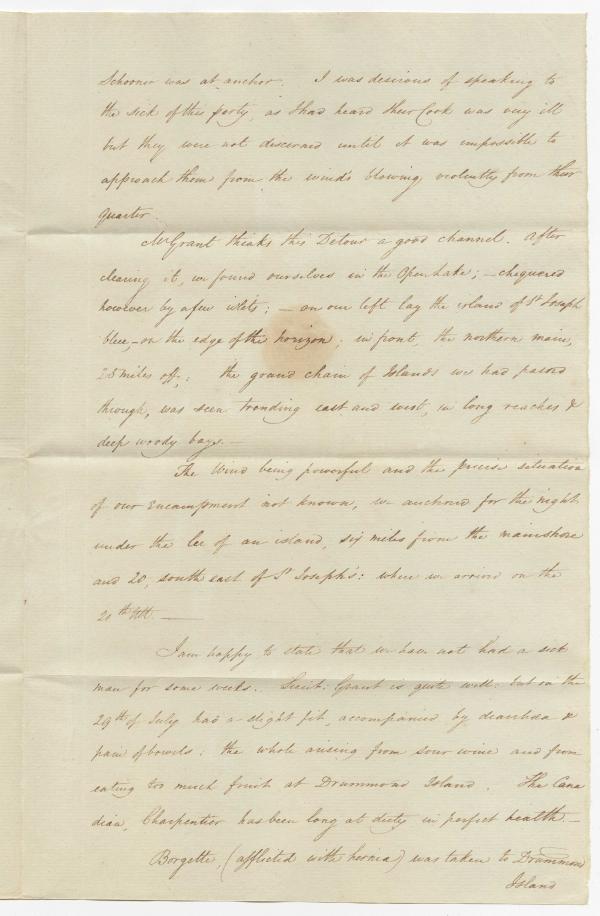 Schooner was at anchor. I was desirous of speaking to
the sick of this party, as I had heard their Cook was very ill
but they were not discerned until it was impossible to
approach them from the wind's blowing violently from their
quarter.
Mr Grant thinks this Detour a good channel. After
clearing it, we found ourselves in the Open Lake; – chequered
however by a few islets; – on our left lay the island of St Joseph
blue, – on the edge of the horizon; in front, the northern main,
25 miles off; the grand chain of Islands we had passed
through, was seen trending east and west, in long reaches &
deep woody bays. –
The Wind being powerful and the precise situation
of our Encampment not known, we anchored for the night
under the lee of an island, six miles from the mainshore
and 20, south east of St Joseph's: where we arrived on the
20th Ult. —
I am happy to state that we have not had a sick
man for some weeks. Lieut: Grant is quite well: but on the
29th of July had a slight fit, accompanied by diarrhœa &
pain of bowels: the whole arising from sour wine and from
eating too much fruit at Drummond Island. The Cana
dian, Charpentier has been long at duty in perfect health. –
Borgette, (afflicted with hernia) was taken to Drummond
Island